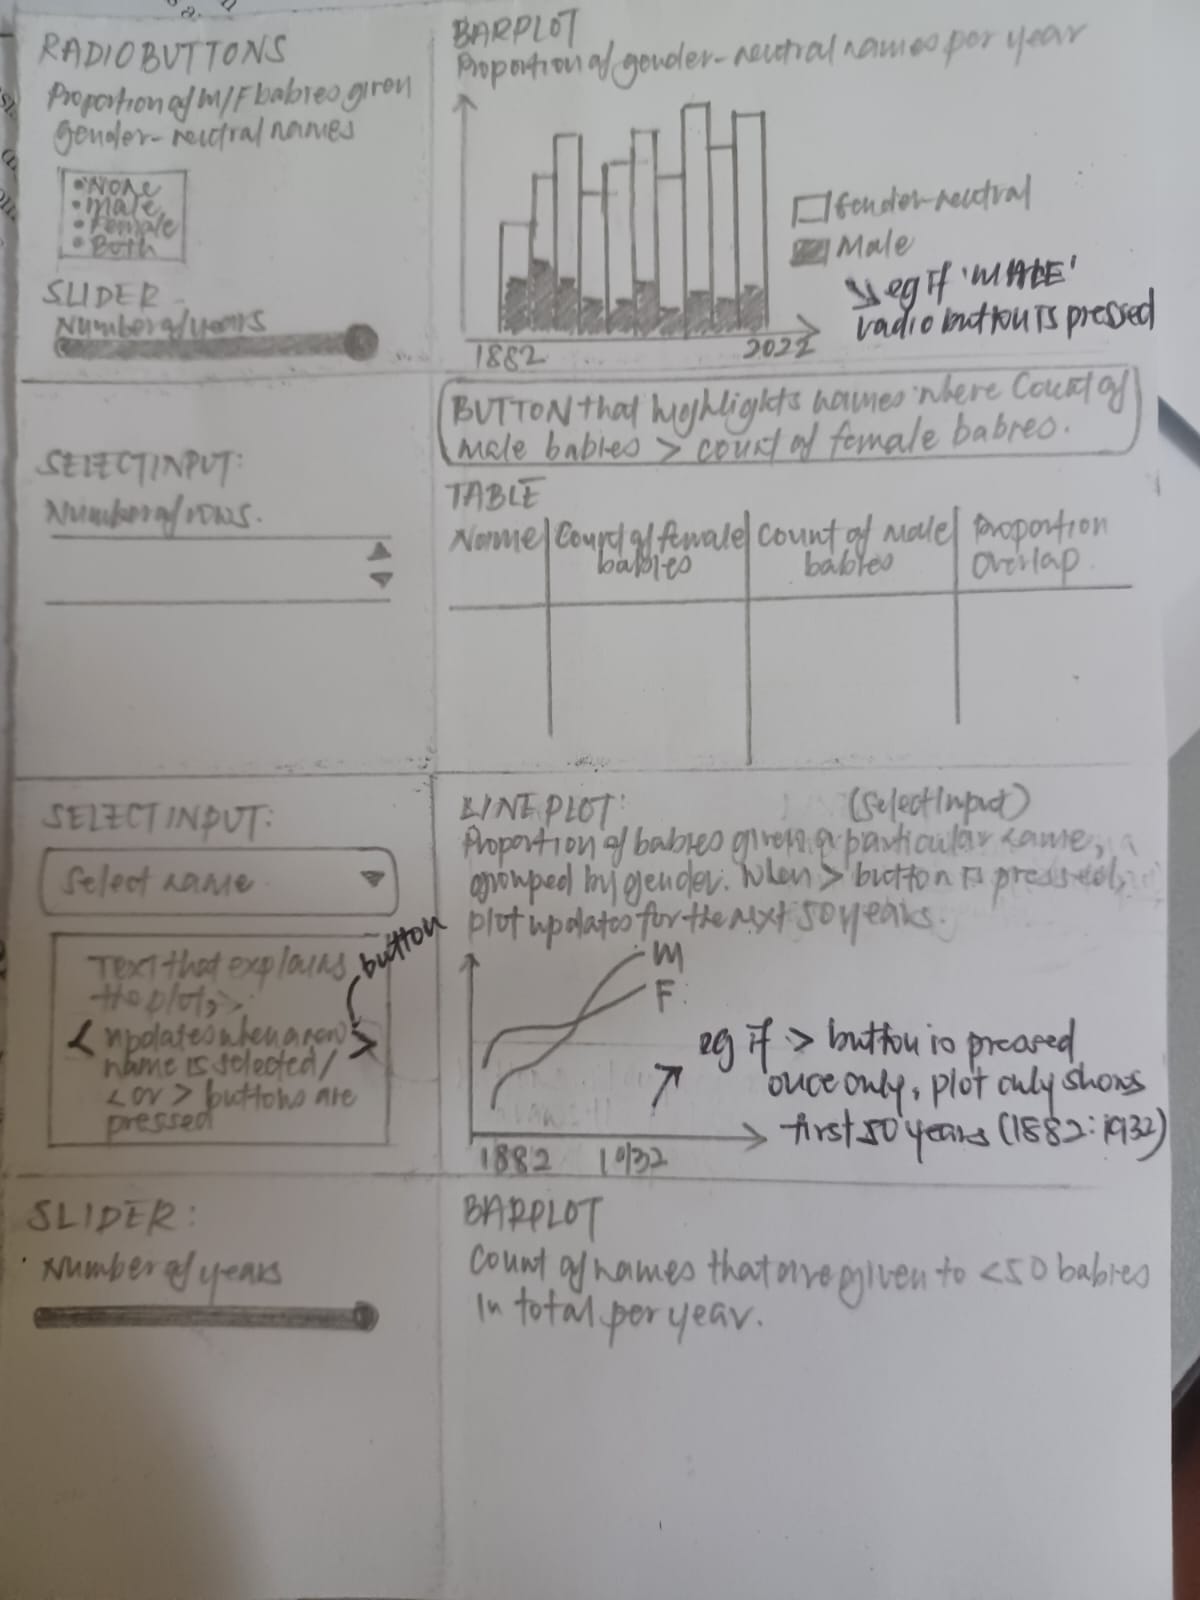 RADIOBUTTONS
Proportion of M/F babies given
gender-neutral names
• None
• Male
• Female
• Both
SLIDER
Number of years
BARPLOT
Proportion of gender-neutral names per year
Gender-neutral
Male
eg if 'MALE'
radio button is pressed
1882
2022
SELECTINPUT:
Number of rows.
BUTTON that highlights names where Count of
male babies > count of female babies.
TABLE
Name
Count of female
babies
Count of male
babies
Proportion
overlap.
SELECTINPUT:
Select name
Text that explains
the plot,
updates when a new
name is selected/
< or > buttons are
pressed
<
>
button
LINEPLOT:
(SelectInput)
Proportion of babies given a particular name,
grouped by gender. When > button is pressed,
plot updates for the next 50 years.
M
F
eg if > button is pressed
once only, plot only shows
first 50 years (1882:1932)
1882
1932
SLIDER:
Number of years
BARPLOT
Count of names that are given to <50 babies
in total per year.